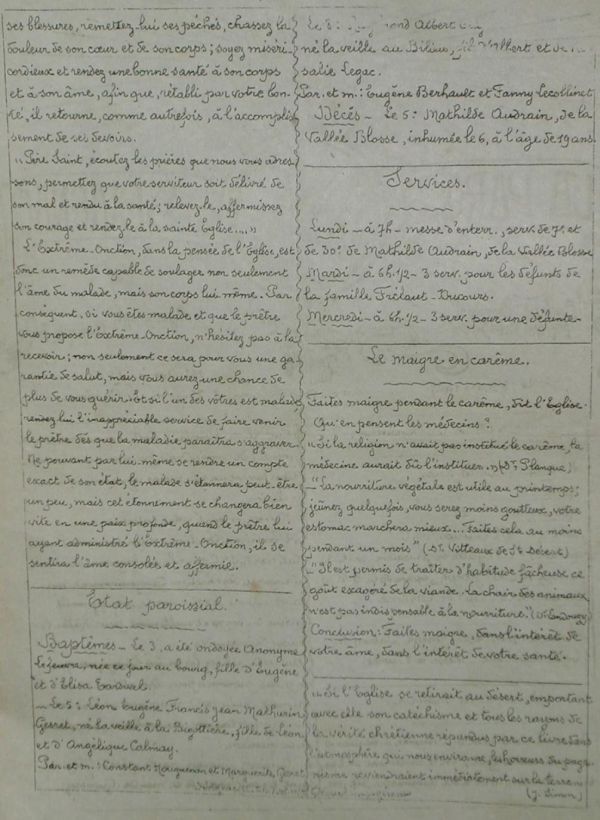 ses blessures, remettez-lui ses péchés, chassez la
douleur de son cœur et de son corps; soyez miséri-
cordieux et rendez une bonne santé à son corps
et à son âme, afin que, rétabli par votre bon-
té, il retourne, comme autrefois, à l'accomplis-
sement de ses devoirs.
"Père Saint, écoutez les prières que nous vous adres-
sons, permettez que votre serviteur soit délivré de
son mal et rendu à la santé; relevez-le, affermissez
son courage et rendez-le à la sainte Eglise...."
L'Extrême-Onction, dans la pensée de l'Eglise, est
donc un remède capable de soulager non seulement
l'âme du malade, mais son corps lui même. Par
conséquent, si vous êtes malade et que le prêtre
vous propose l'Extrême-Onction, n'hésitez pas à la
recevoir; non seulement ce sera pour vous une ga-
rantie de salut, mais vous aurez une chance de
plus de vous guérir. Et si l'un des vôtres est malade
rendez-lui l'inappréciable service de faire venir
le prêtre dès que la maladie paraîtra s'aggraver.
Ne pouvant par lui-même se rendre un compte
exact de son état, le malade s'étonnera peut-être
un peu, mais cet étonnement se changera bien
vite en une paix profonde, quand le prêtre lui
ayant administré l'Extrême-Onction, il se
sentira l'âme consolée et affermie.
Etat paroissial.
Baptêmes - Le 3, a été ondoyée Anonyme
née ce jour au bourg, fille d'Eugène
et d'Elisa
- Le 5: Léon Eugène Francis Jean Mathurin
Gesret, né la veille à la fils de Léon
et d'Angélique Calmay.
Par. et m.: Constant et Marguerite Gesret
Le 8: Albert
né la veille au Bilieu, fil d'Albert et de
salie Legac.
Par. et m.: Eugène Berhault et Fanny Lecollinet
Décès - Le 5: Mathilde Audrain, de la
Vallée Blosse, inhumée le 6, à l'âge de 19 ans.
Services.
Lundi - à 7h - messe d'enterr., serv. de 7e et
de 30e de Mathilde Audrain, de la Vallée Blosse
Mardi - à 6h.1/2 - 3 serv. pour les défunts de
la famille Frélaut-Ducours.
Mercredi - à 6h.1/2 - 3 serv. pour une défunte
Le maigre en carême.
Faites maigre pendant le carême, dit l'Eglise.
Qu'en pensent les médecins?
"Si la religion n'avait pas institué le carême, la
médecine aurait dû l'instituer." (Dr
- "La nourriture végétale est utile au printemps;
jeûnez quelquefois, vous serez moins goutteux, votre
estomac marchera mieux... Faites cela au moins
pendant un mois" (Dr
- "Il est permis de traiter d'habitude fâcheuse ce
goût exagéré de la viande. La chair des animaux
n'est pas indispensable à la nourriture." (Dr Landouzy)
Conclusion: Faites maigre, dans l'intérêt de
votre âme, dans l'intérêt de votre santé.
"Si l'Eglise se retirait au désert, emportant
avec elle son catéchisme et tous les rayons de
la vérité chrétienne répandus par ce livre dans
l'atmosphère qui nous environne, les horreurs du paga-
nisme reviendraient immédiatement sur la terre
(J. Simon)